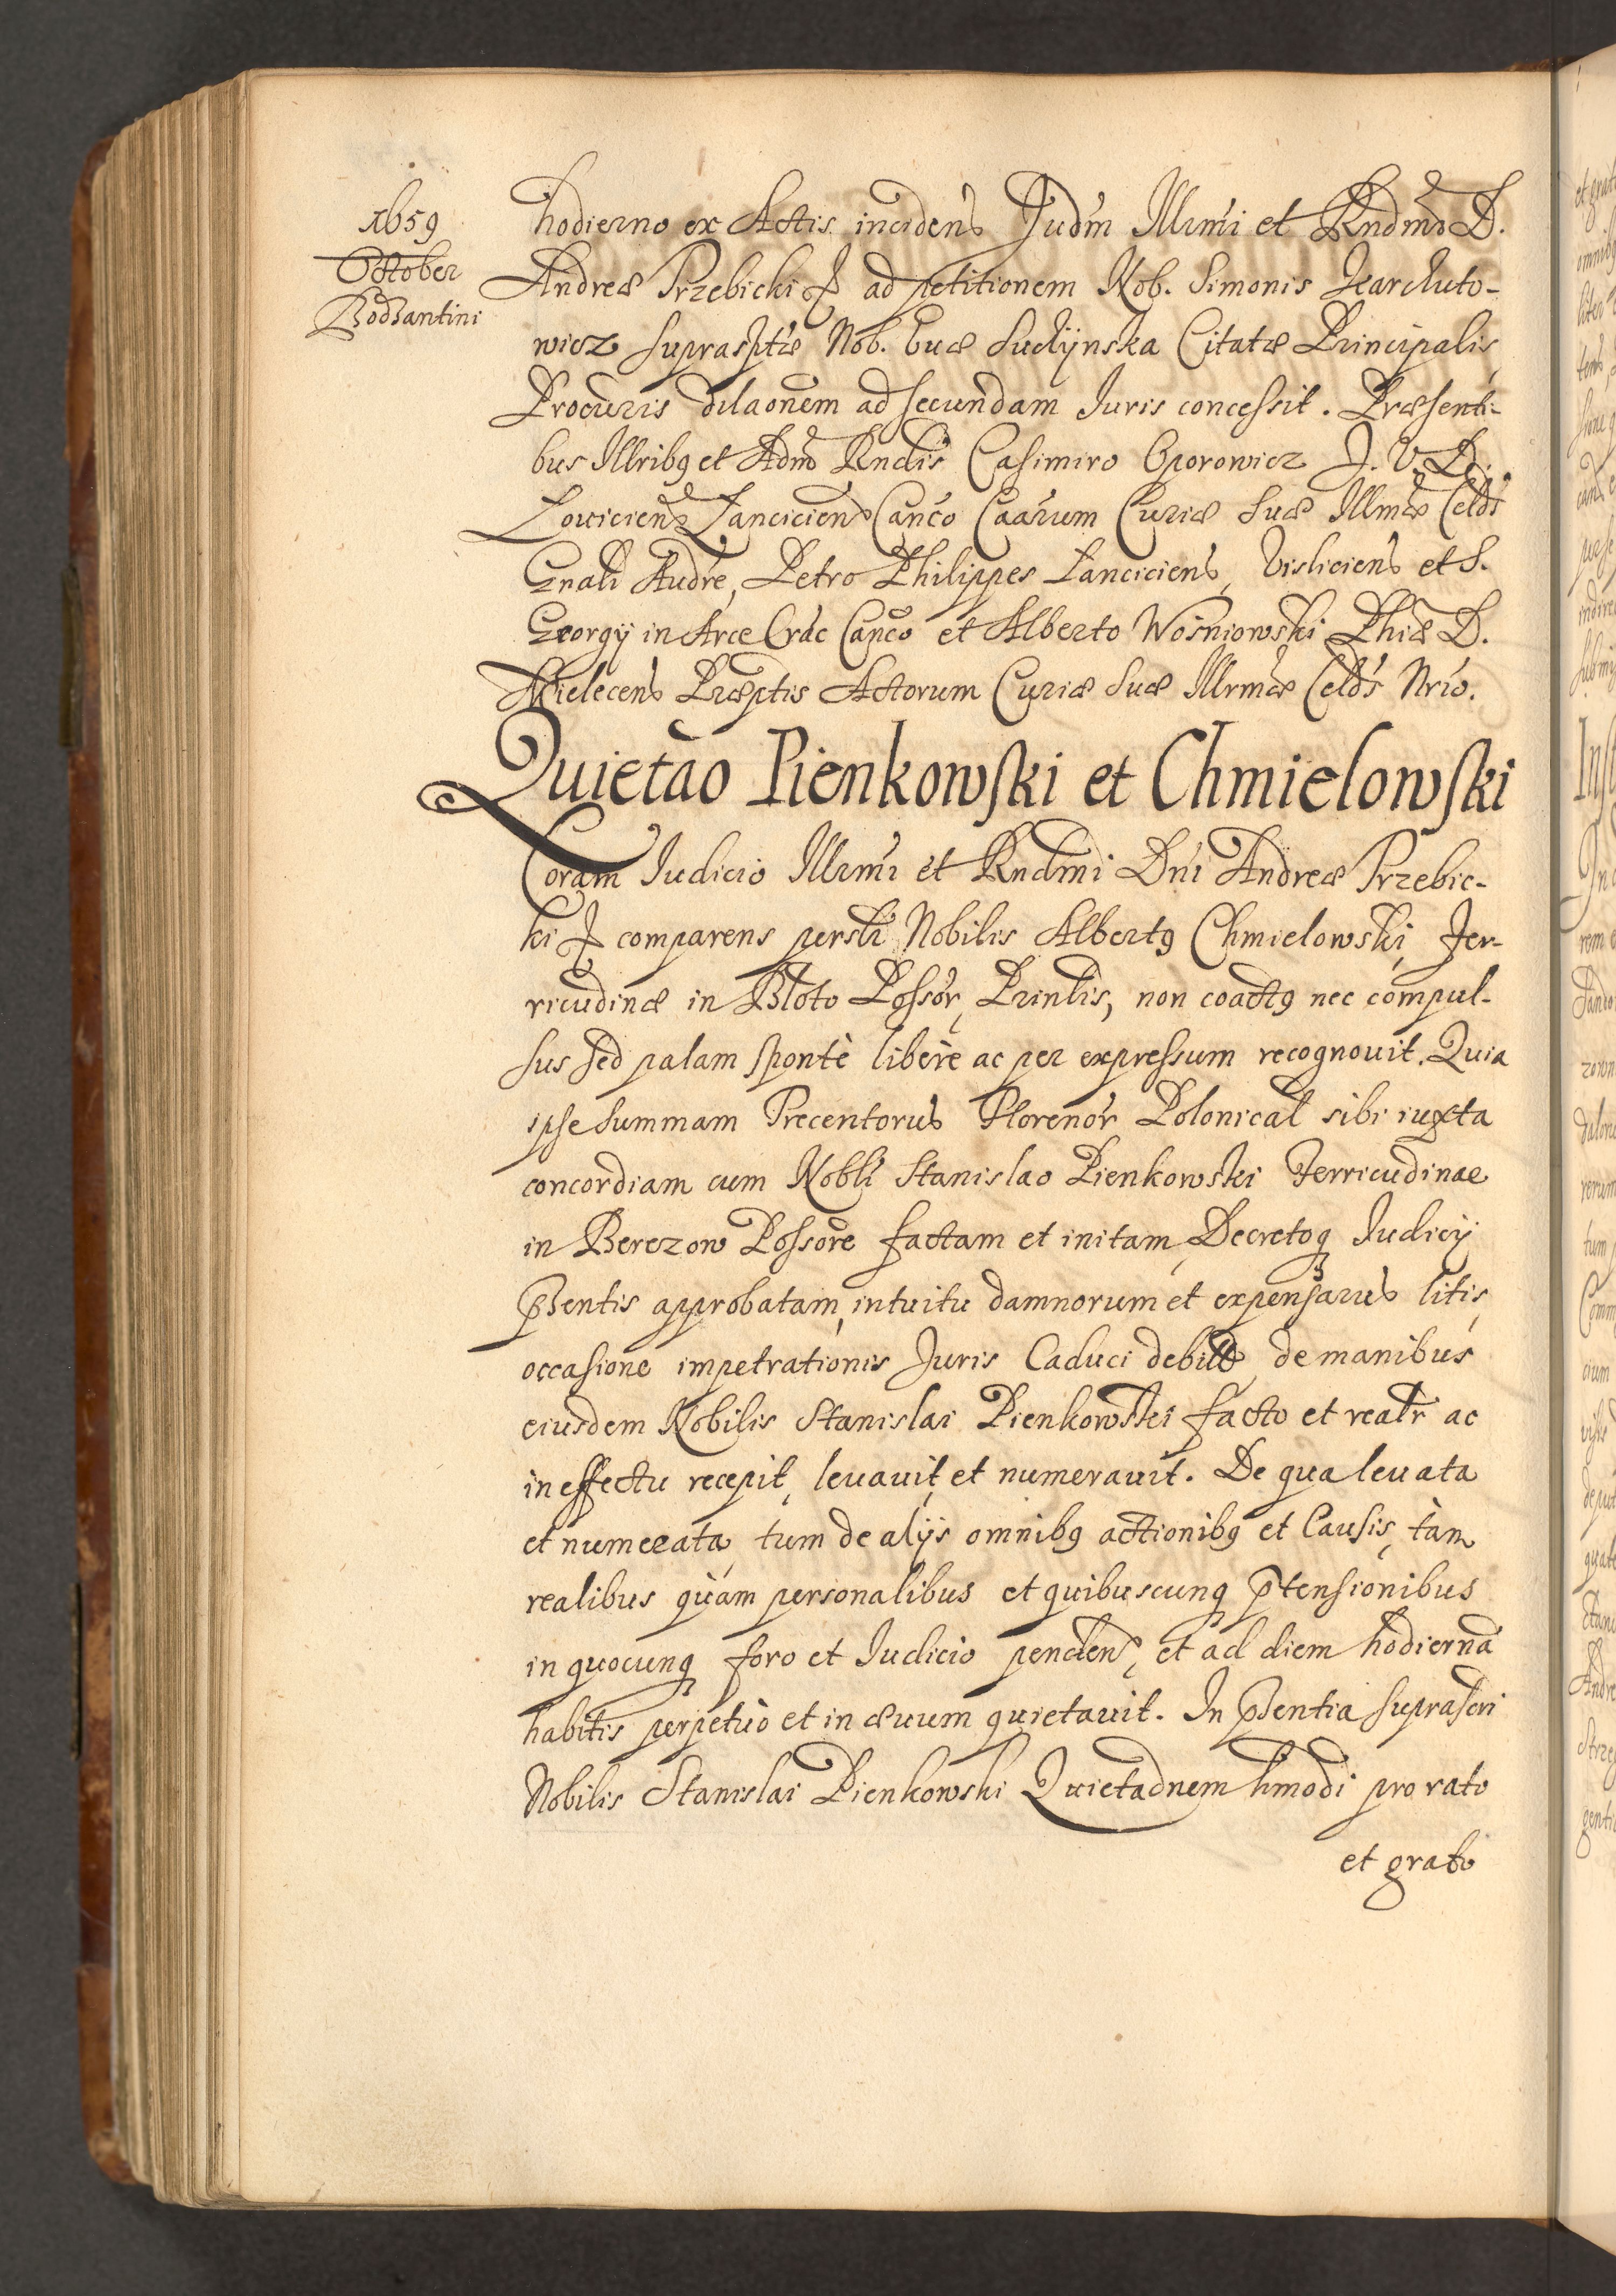 1659
October
Bodzantini
hodierno ex Actis incidens Judm Illrmi et Rndmi D.
Andreæ Trzebicki ad petitionem Nob. Simonis
wicz suprasptæ Nob. Evæ Suchynska Citatæ Principalis,
Procuris dilaonem ad secundam Juris concessit. Præsenti-
bus Illribq et Adm Rndis Casimiro Oporowicz J. V. D.
Lovicien Lancicien Canco Caarum Curiæ Suæ Illmæ Celdis
Gnali Audre, Petro Philippes Lanciciens, Visliciens et S.
Georgij in Arce Crac Canco et Alberto Wosniowski Phiæ D.
Mielecens Præptis Actorum Curiæ Suæ Illrmæ Celdis Nrio.
Quietao Pienkowski et Chmielowski
Coram Judicio Illrmi et Rndmi Dni Andreæ Trzebic-
ki comparens persli Nobilis Albertq Chmielowski, Ter-
ricudinæ in Bloto Possor, Prinlis, non coactq nec compul-
sus sed palam sponte libere ac per expressum recognouit. Quia
ipse Summam Trecentorus Florenor Polonical sibi iuxta
concordiam cum Nobli Stanislao Pienkowski Terricudinae
in Berezow Possore factam et initam, Decretoq Judicij
pñsentis approbatam, intuitu damnorum et expensarus litis,
occasione impetrationis Juris Caduci debitæ de manibus
eiusdem Nobilis Stanislai Pienkowski facto et realr ac
in effectu recepit, leuauit, et numerauit. De qua leuata
et numerata, tum de alijs omnibq actionibq et Causis, tàm
realibus quàm personalibus et quibuscunq ptensionibus
in quocunq foro et Judicio penden, et ad diem hodierna
habitis perpetuo et in æuum quietauit. In pñsentia suprascri
Nobilis Stanislai Pienkowski Quietaonem hmodi pro rato
et grato